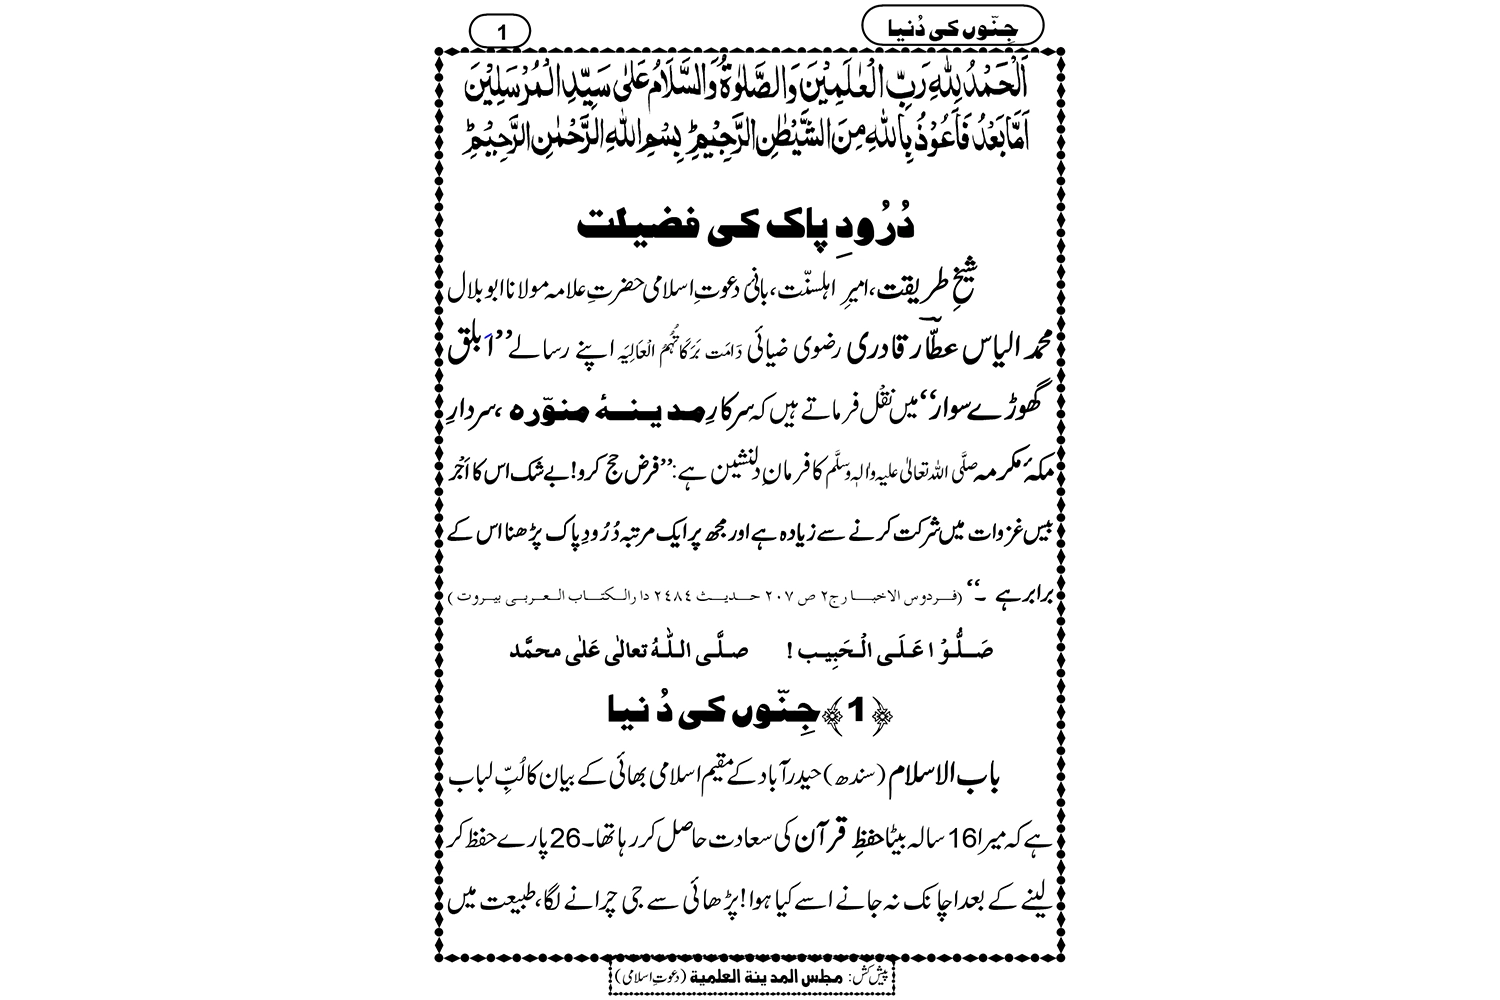 جِنّوں کی دُنیا
1
اَلْحَمْدُ لِلّٰہِ رَبِّ الْعٰلَمِیْنَ وَالصَّلٰوۃُ وَالسَّلَامُ عَلٰی سَیِّدِ الْمُرْسَلِیْنَ
اَمَّا بَعْدُ فَاَعُوْذُ بِاللّٰہِ مِنَ الشَّیْطٰنِ الرَّجِیْمِ ؕ بِسْمِ اللّٰہِ الرَّحْمٰنِ الرَّحِیْمِ ؕ
دُرُودِ پاک کی فضیلت
شیخِ طریقت، امیرِ اہلسنّت، بانیٔ دعوتِ اسلامی حضرتِ علامہ مولانا ابو بلال
محمد الیاس عطّار قادری رضوی ضیائی دَامَت بَرَکَاتُہُمُ الْعَالِیَہ اپنے رسالے ’’اَبلق
گھوڑے سوار‘‘ میں نقْل فرماتے ہیں کہ سرکارِ مدینۂ منوّرہ ، سردارِ
مکۂ مکرمہ صلَّی اللہ تعالیٰ علیہ واٰلہٖ وسلَّم کا فرمانِ دلنشین ہے: ’’فرض حج کرو! بے شک اس کا اَجْر
بیس غزوات میں شرکت کرنے سے زیادہ ہے اور مجھ پر ایک مرتبہ دُرُودِ پاک پڑھنا اس کے
برابر ہے ۔‘‘ (فردوس الاخبار ج۲ ص ۲۰۷ حدیث ۲۴۸۴ دارالکتاب العربی بیروت )
صَلُّوْا عَلَی الْحَبِیب ! صلَّی اللّٰہُ تعالٰی عَلٰی محمَّد
﴿1﴾ جِنّوں کی دُنیا
باب الاسلام (سندھ) حیدرآباد کے مقیم اسلامی بھائی کے بیان کا لُبِّ لباب
ہے کہ میرا 16 سالہ بیٹا حفظِ قرآن کی سعادت حاصل کر رہا تھا۔ 26 پارے حفظ کر
لینے کے بعد اچانک نہ جانے اسے کیا ہوا! پڑھائی سے جی چرانے لگا، طبیعت میں
پیش کش: مجلس المدینۃ العلمیۃ (دعوتِ اسلامی)